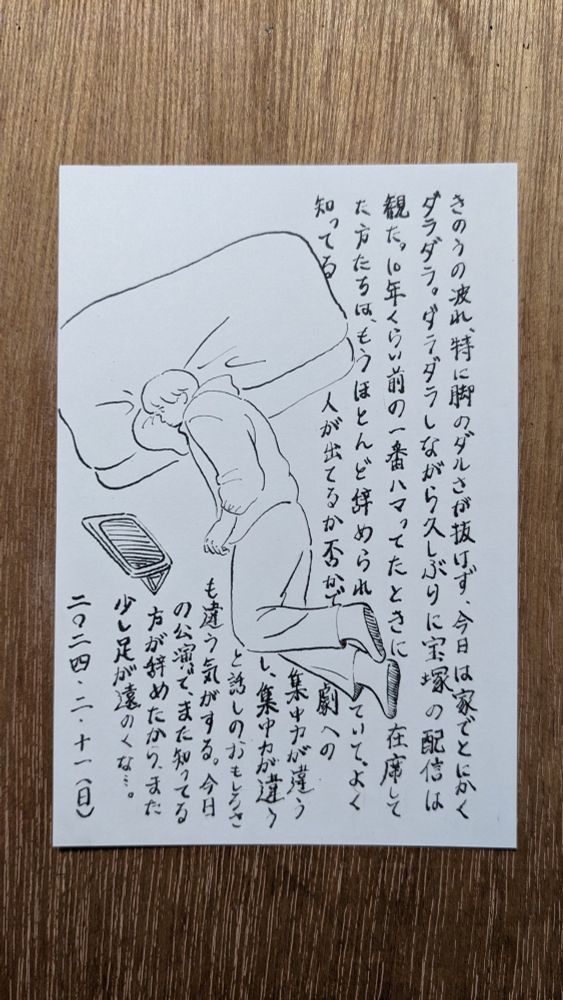 きのうの疲れ、特に脚のダルさが抜けず、今日は家でとにかく
ダラダラ。ダラダラしながら久しぶりに宝塚の配信は
観た。10年くらい前の一番ハマってたときに在席して
た方たちは、もうほとんど辞められていて、よく
知ってる人が出てるか否かで劇への
集中力が違う
し、集中力が違う
と話しのおもしろさ
も違う気がする。今日
の公演で、また知ってる
方が辞めたから、また
少し足が遠のくな…。
二〇二四・二・十一(日)